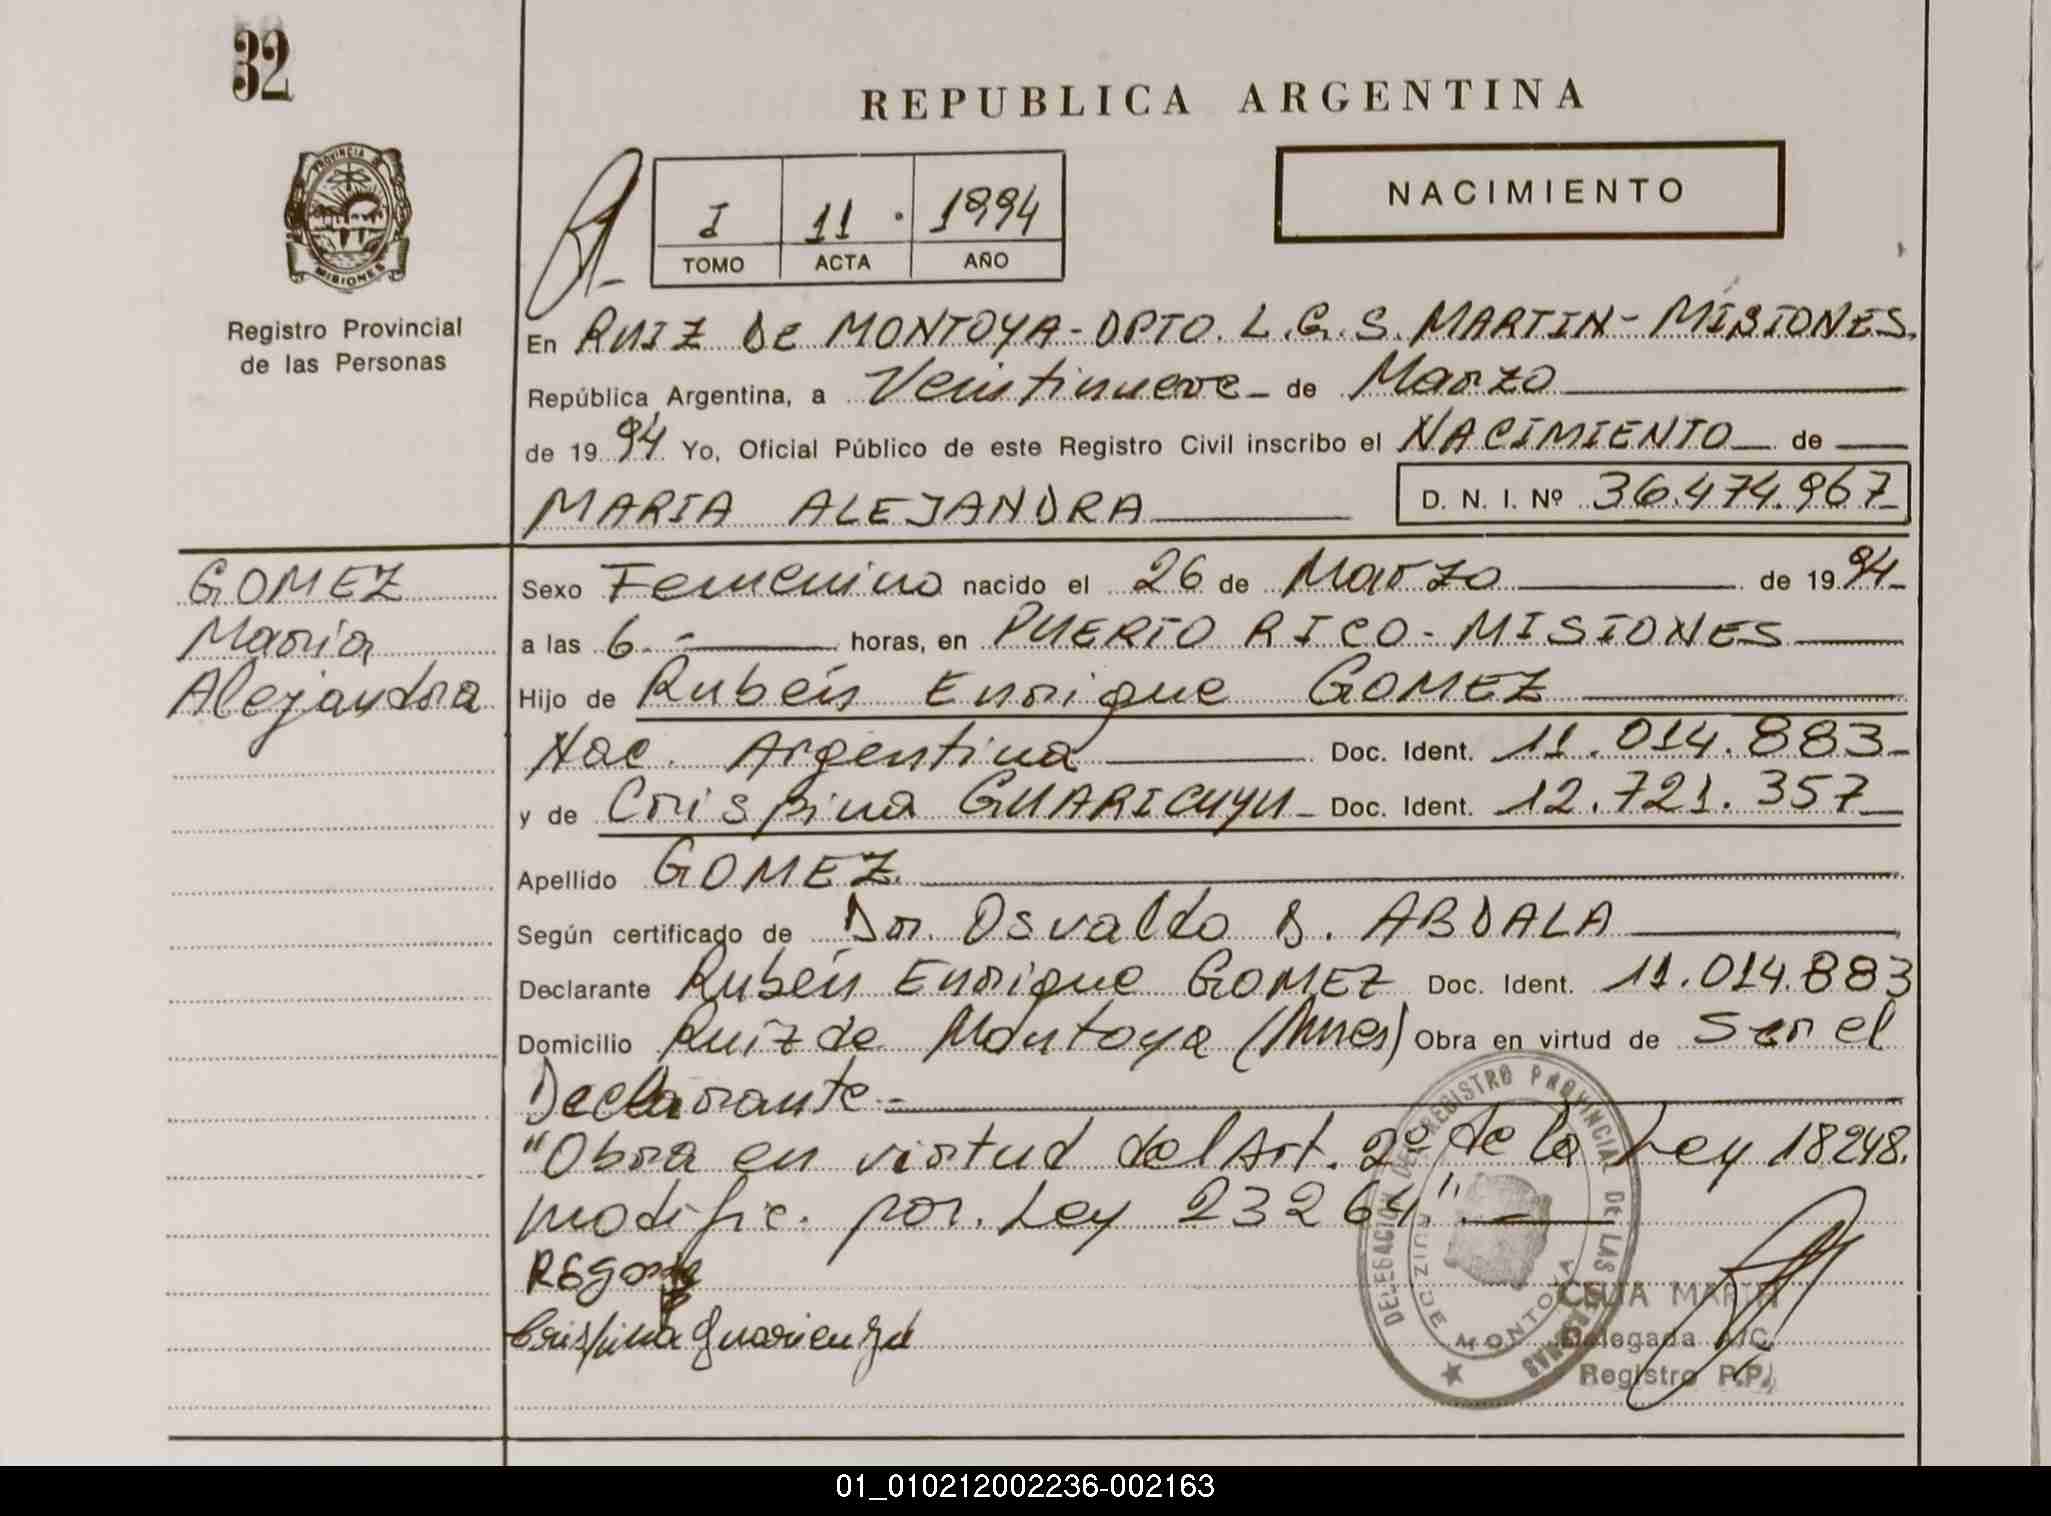 32
REPUBLICA ARGENTINA
PROVINCIA DE
MISIONES
Registro Provincial
de las Personas
I 11 . 1994
TOMO ACTA AÑO
NACIMIENTO
En RUIZ DE MONTOYA - DPTO. L.G.S. MARTIN - MISIONES.
República Argentina, a Veintinueve de Marzo
de 1994 Yo, Oficial Público de este Registro Civil inscribo el NACIMIENTO de
MARIA ALEJANDRA D. N. I. Nº 36.474.967
GOMEZ
Maria
Alejandra
Sexo Femenino nacido el 26 de Marzo de 1994
a las 6.- horas, en PUERTO RICO - MISIONES
Hijo de Rubén Enrique GOMEZ
Nac. Argentina Doc. Ident. 11.014.883
y de Crispina GUARICUYU Doc. Ident. 12.721.357
Apellido GOMEZ.
Según certificado de Dr. Osvaldo D. ABDALA
Declarante Rubén Enrique GOMEZ Doc. Ident. 11.014.883
Domicilio Ruiz de Montoya (Mnes) Obra en virtud de Ser el
Declarante.-
"Obra en virtud del Art. 2º de la Ley 18248.
modific. por. Ley 23264".
Crispina
DELEGACION DEL REGISTRO PROVINCIAL DE LAS PERSONAS
RUIZ DE MONTOYA
CELIA
Delegada A/C
Registro P.P.
01_010212002236-002163